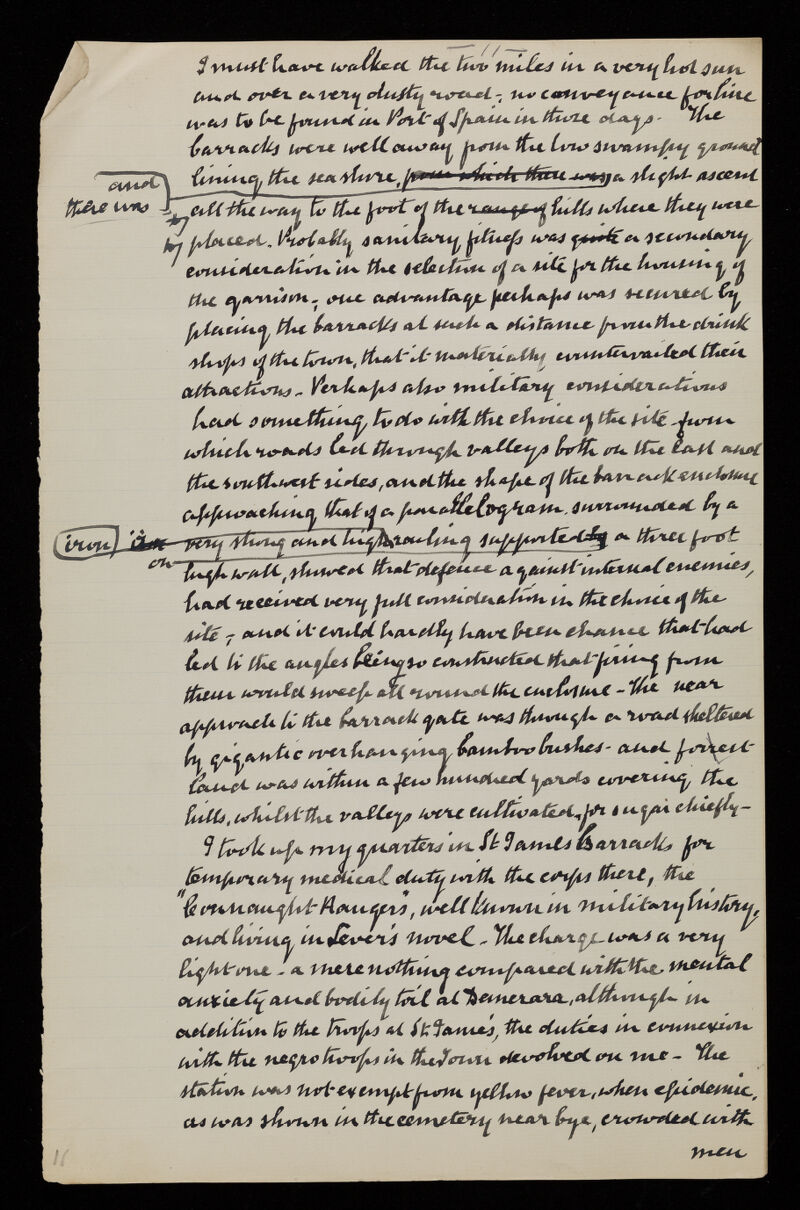 11
I must have walked the two miles in a very hot sun
and over a very dusty road -; no conveyance for hire
was to be found in Port of Spain in those days - The
barracks were well away from the low swampy ground
and lining the sea shore, from which there was a slight ascent
there was all the way to the foot of the range of hills where they were
placed. Probably sanitary fitness was quite a secondary
consideration in the selection of a site for the housing of
the garrison -; one advantage perhaps was secured by
placing the barracks at such a distance from the drink
shops of the town, that it materially countervailed their
attractions - Perhaps also military considerations
had something to do with the choice of the site - from
which roads led through valleys both on the East and
the south west sides, and the shape of the barrack enclosure
approaching that of a parallelogram, surrounded by a
iron very strong and high railing supported by a three foot
on high wall, showed that defence against internal enemies,
had received very full consideration in the choice of the
site -; and it could hardly have been chance that had
led to the angles being so constructed that firing from
them would sweep all round the enclosure - The near
approach to the barrack gate was through a road sheltered
by gigantic overhanging bamboo bushes - and forrest
land was within a few hundred yards covering the
hills, whilst the valleys were cultivated, for sugar chiefly -
I took up my quarters in St James Barracks for
temporary medical duty with the corps there, the
"Connaught Rangers", well known in military history,
and living in Lever's novel - The charge was a very
light one - a mere nothing compared with the mental
anxiety and bodily toil at Demerara, although in
addition to the troops at St. James, the duties in connexion
with the negro troops in the Town devolved on me - The
station was not exempt from yellow fever, when epidemic,
as was shown in the cemetery near bye, crowded with
men
16